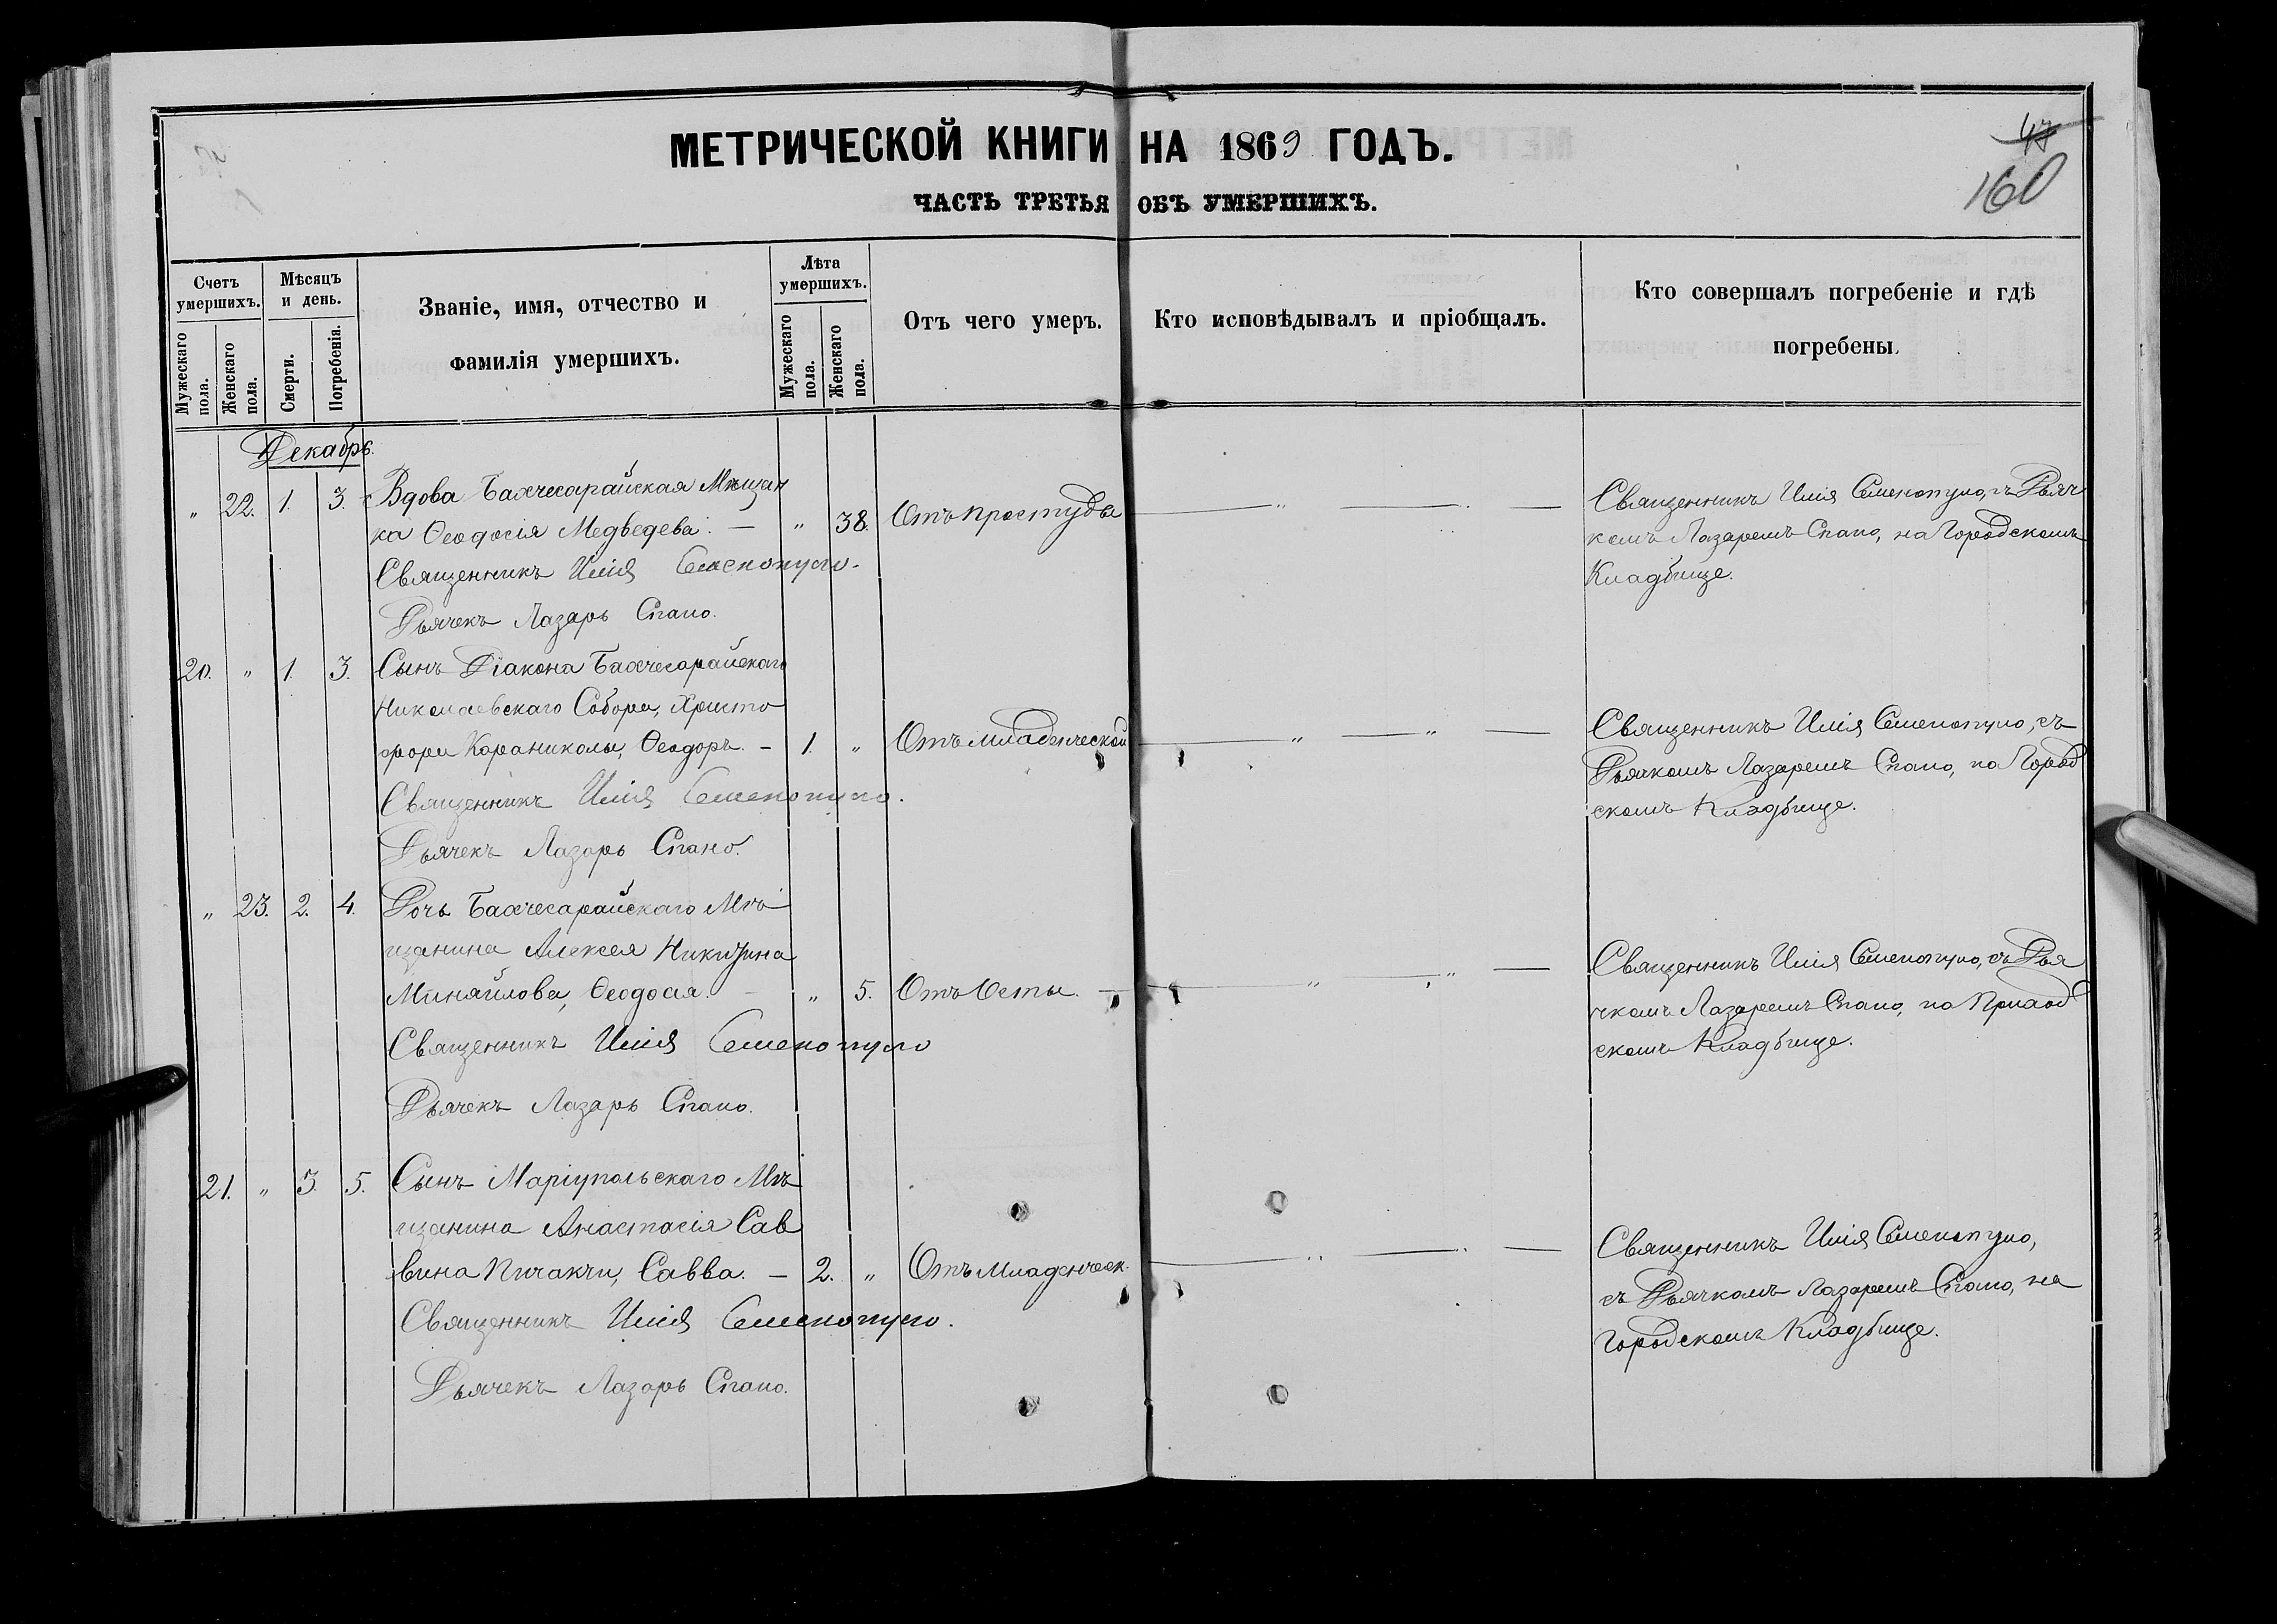 МЕТРИЧЕСКОЙ КНИГИ НА 1869 ГОДЪ.
ЧАСТЬ ТРЕТЬЯ ОБЪ УМЕРШИХЪ.
47
160
Счетъ умершихъ.
Мужескаго пола.
Женскаго пола.
Мѣсяцъ и день.
Смерти.
Погребенія.
Званіе, имя, отчество и
фамилія умершихъ.
Лѣта умершихъ.
Мужескаго пола.
Женскаго пола.
Отъ чего умеръ.
Кто исповѣдывалъ и пріобщалъ.
Кто совершалъ погребеніе и гдѣ
погребены.
Декабрь.
" 22. 1. 3. Вдова Бахчесарайская Мѣщан
ка Ѳеодосія Медведева. — " 38. Отъ простуды
Священникъ Илія Семенопуло.
Дьячекъ Лазарь Спано.
Священникъ Илія Семенопуло, съ Дьяч
комъ Лазаремъ Спано, на Городскомъ
Кладбище.
20. " 1. 3. Сынъ Діакона Бахчесарайскаго
Николаевскаго Собора, Христо
фора Караниколы, Ѳеодоръ. — 1. " Отъ младенческой
Священникъ Илія Семенопуло.
Дьячекъ Лазарь Спано.
Священникъ Илія Семенопуло, съ
Дьячкомъ Лазаремъ Спано, на Город
скомъ Кладбище.
" 23. 2. 4. Дочь Бахчесарайскаго Мѣ
щанина Алексея Никитина
Минайлова, Ѳеодосія. — " 5. Отъ Оспы.
Священникъ Илія Семенопуло
Дьячекъ Лазарь Спано.
Священникъ Илія Семенопуло, съ Дья
чкомъ Лазаремъ Спано, на Приход
скомъ Кладбище.
21. " 3. 5. Сынъ Маріупольскаго Мѣ
щанина Анастасія Сав
вина Пичакчи, Савва. — 2. " Отъ Младенческ.
Священникъ Илія Семенопуло.
Дьячекъ Лазарь Спано.
Священникъ Илія Семенопуло,
съ Дьячкомъ Лазаремъ Спано, на
Городскомъ Кладбище.